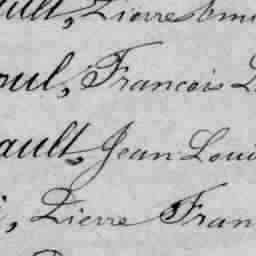 ault, Pierre Emi
oul, François L
ault, Jean Loui
, Pierre Fran